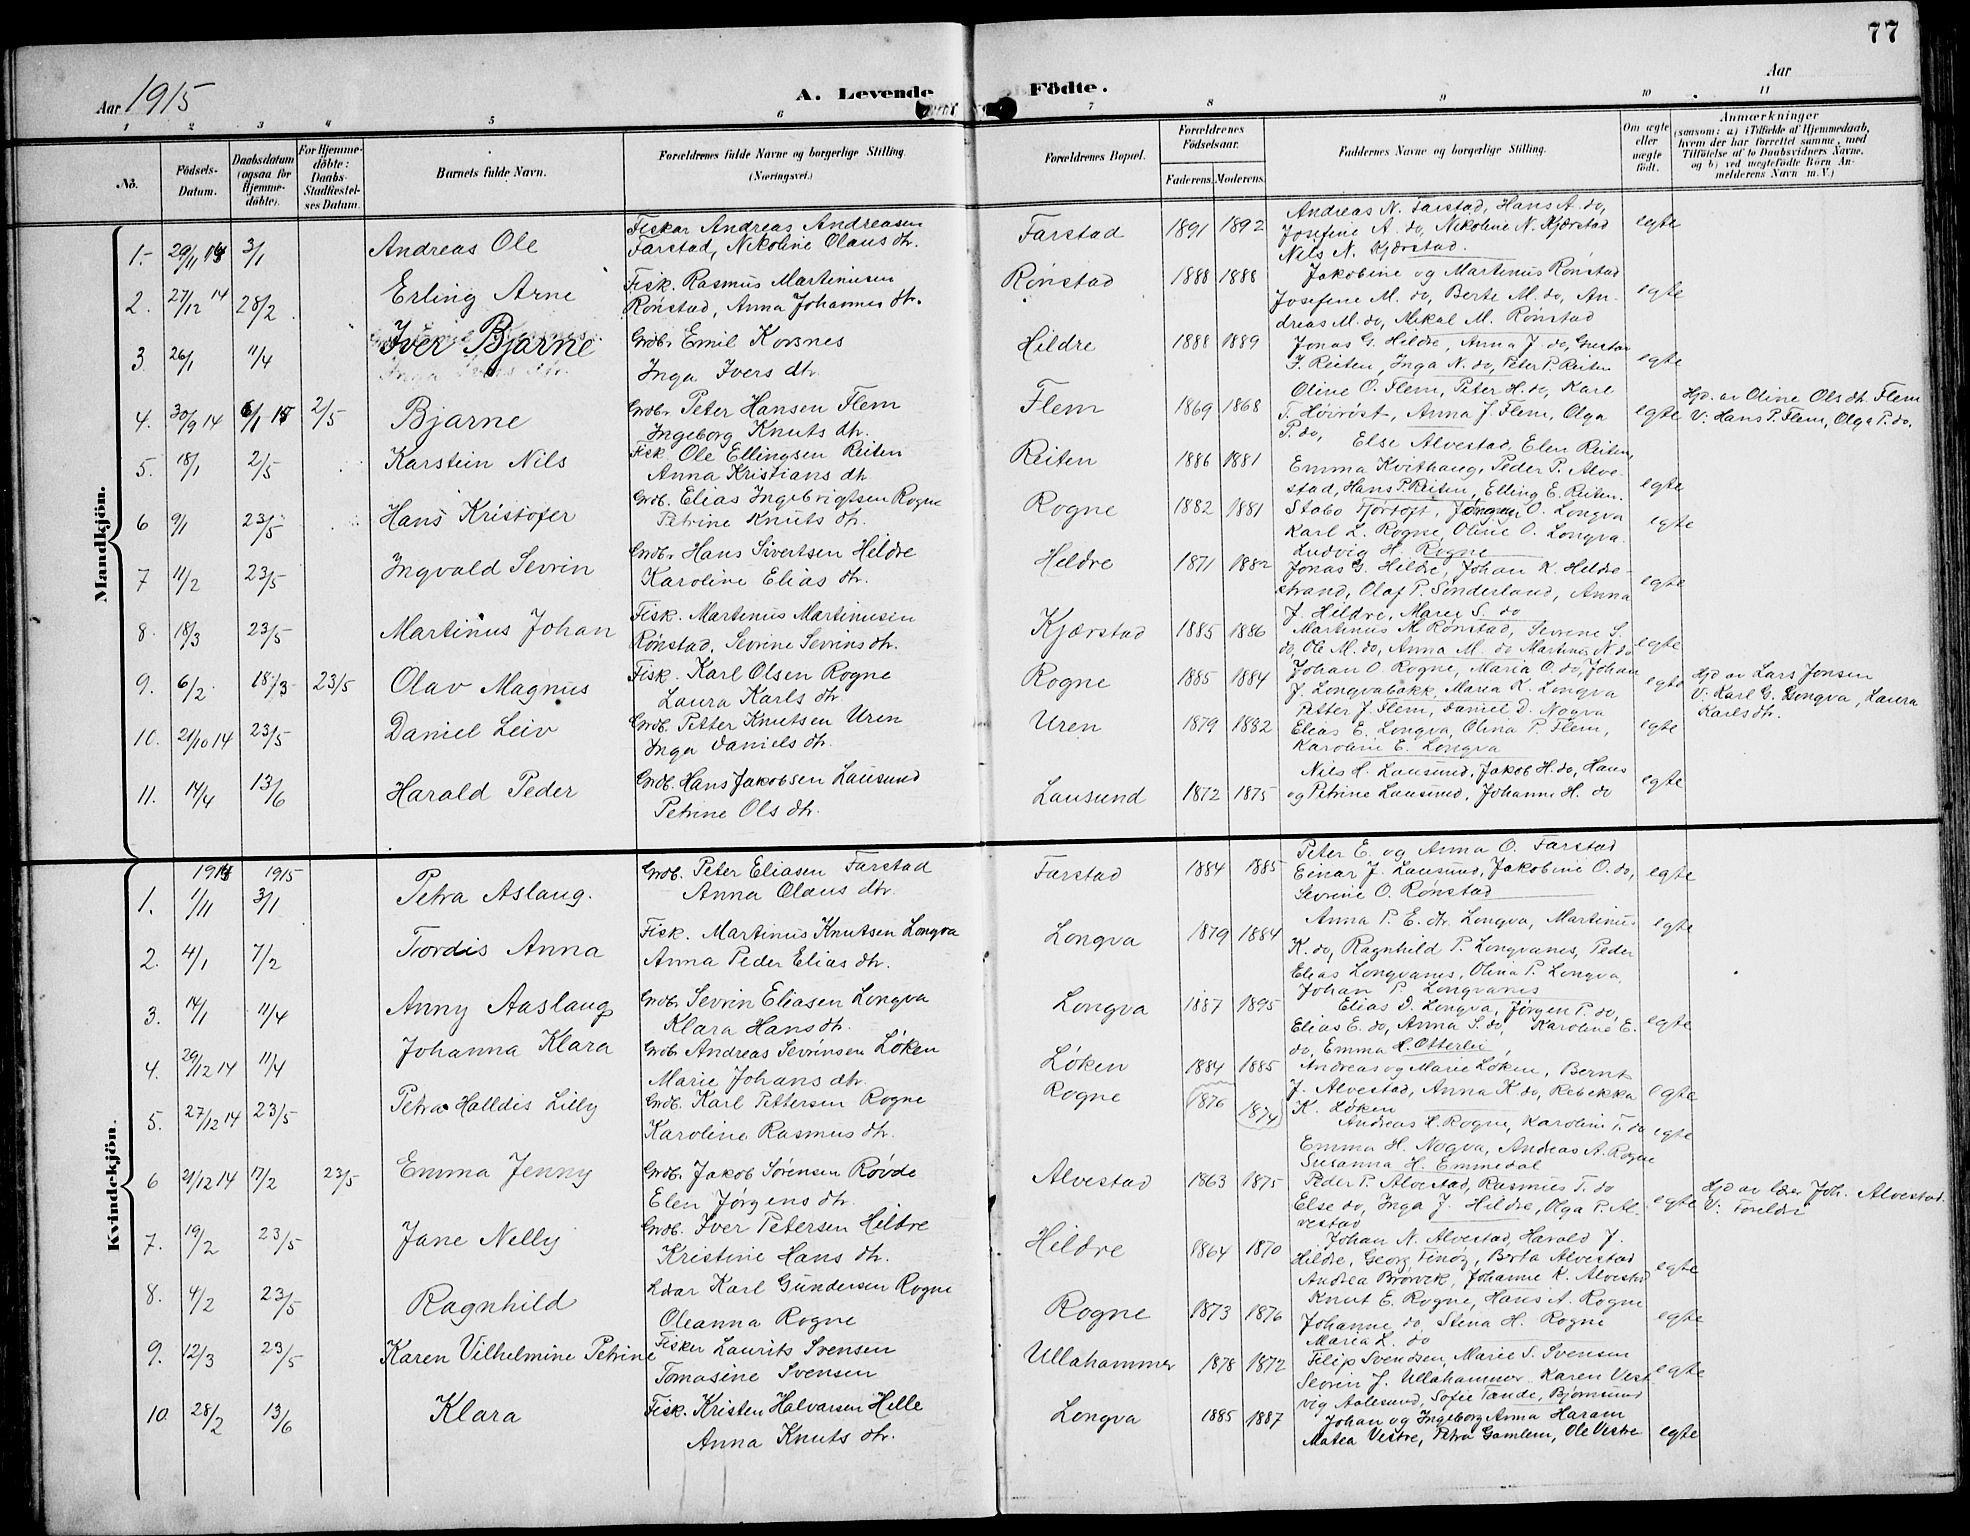 77
Aar 1915
A. Levende Födte.
Aar
1 2 3 4 5 6 7 8 9 10 11
No.
Födsels-Datum.
Daabsdatum (ogsaa for Hjemme-döbte).
For Hjemme-döbte: Daabs-Stadfæstel-ses Datum.
Barnets fulde Navn.
Forældrenes fulde Navne og borgerlige Stilling.
(Næringsvei.)
Forældrenes Bopæl.
Forældrenes Födselsaar.
Faderens. Moderens.
Faddernes Navne og borgerlige Stilling.
Om ægte eller uægte födt.
Anmærkninger
(saasom: a) i Tilfælde af Hjemmedaab,
hvem der har forrettet samme, med
Tilföielse af to Daabsvidners Navne.
og b) ved uægtefödte Börn An-
melderens Navn m. V.)
Mandkjön.
1. 29/11 3/1 Andreas Ole
Fiskar Andreas Andreasen
Farstad, Nikoline Olaus dtr.
Farstad 1891 1892
Andreas N. Farstad, Hans A. do,
Josefine A. do, Nikoline N. Kjærstad
Nils N. Kjærstad.
egte
2. 27/12 14 28/2 Erling Arne
Fisk. Rasmus Martinusen
Rønstad, Anna Johannes dtr.
Rønstad 1888 1888
Jakobine og Martinus Rønstad
Josefine M. do, Berte M. do, An-
dreas M. do, Mikal M. Rønstad
egte
3. 26/1 11/4 Iver Bjarne
Grdb. Emil Korsnes
Inga Ivers dtr.
Hildre 1888 1889
Jonas G. Hildre, Anna J. do, Gustav
J. Reiten, Inga N. do, Peter P. Reiten
egte
4. 30/9 14 6/1 15 2/5 Bjarne
Grdbr. Peter Hansen Flem
Ingeborg Knuts dtr.
Flem 1869 1868
Oline O. Flem, Peter H. do, Karl
T. Hovröst, Anna J. Flem, Olga
P. do,
egte
Hjd. av Oline Ols dtr. Flem
V: Hans P. Flem, Olga P. do.
5. 18/1 2/5 Karstein Nils
Fisk. Ole Ellingsen Reiten
Anna Kristians dtr
Reiten 1886 1881
Else Alvestad, Elen Reiten,
Emma Kvithaug, Peder P. Alve-
stad, Hans P. Reiten, Elling E. Reiten.
egte
6 9/1 23/5 Hans Kristofer
Grdb. Elias Ingebrigtsen Rogne
Petrine Knuts dtr.
Rogne 1882 1881
Stabo Fjörtoft, Jörgen O. Longva
Karl L. Rogne, Oline O. Longva.
Ludvig H. Rogne
egte
7 11/2 23/5 Ingvald Sevrin
Grdbr. Hans Sivertsen Hildre
Karoline Elias dtr.
Hildre 1871 1882
Jonas G. Hildre, Johan K. Hildre-
strand, Olaf P. Sönderland, Anna
J. Hildre, Maria S. do
egte
8. 18/3 23/5 Martinus Johan
Fisk. Martinus Martinusen
Rønstad, Sevrine Sevrins dtr.
Kjærstad 1885 1886
Martinus M Rønstad, Sevrine S.
do, Ole M. do, Anna M. do Martines N. do
egte
9. 6/2 18/3 23/5 Olav Magnus
Fisk. Karl Olsen Rogne
Laura Karls dtr
Rogne 1885 1884
Johan O. Rogne, Maria O. do, Johan
J. Longvabakk, Maria K. Longva
egte
Hjd av Lars Jonsen
V: Karl G. Longva, Laura
Karls dtr.
10. 21/10 14 23/5 Daniel Leiv
Grdb. Petter Knutsen Uren
Inga Daniels dtr.
Uren 1879 1882
Petter J. Flem, Daniel D. Nogva
Elias E. Longva, Olina P. Flem,
Karoline E. Longva
egte
11. 14/4 13/6 Harald Peder
Grdb. Hans Jakobsen Lausund
Petrine Ols dtr.
Lausund 1872 1875
Nils H. Lausund, Jakob H. do, Hans
og Petrine Lausund, Johanne H. do
egte
Kvindekjön.
1914 1915
1. 1/11 3/1 Petra Aslaug.
Grdb. Peter Eliasen Farstad
Anna Olaus dtr.
Farstad 1884 1885
Peter E. og Anna O. Farstad
Einar J. Lausund, Jakobine O. do,
Sevrine O. Rønstad
egte
2. 4/1 7/2 Tordis Anna
Fisk. Martinus Knutsen Longva
Anna Peder Elias dtr.
Longva 1879 1884
Anna P. E. dtr. Longva, Martinus
K. do, Ragnhild P. Longvanes, Peder
Elias Longvanes, Olina P. Longva,
Johan P. Longvanes
egte
3. 14/1 11/4 Anny Aaslaug
Grdbr. Sevrin Eliasen Longva
Klara Hans dtr.
Longva 1887 1895
Elias D. Longva, Jørgen P. do,
Elias E. do, Anna S. do, Karoline E.
do, Emma H. Otterlei
egte
4. 29/12 14 11/4 Johanna Klara
Grdb. Andreas Sevrinsen Løken
Marie Johans dtr.
Løken 1884 1885
Andreas og Marie Løken, Bernt
J. Alvestad, Anna K. do, Rebekka
K. Løken
egte
5. 27/12 14 23/5 Petra Halldis Lilly
Grdb. Karl Pettersen Rogne
Karoline Rasmus dtr.
Rogne 1876 1874
Andreas H. Rogne, Karoline T. do
Emma H. Nogva, Andreas A. Rogne
Susanna H. Emmedal
egte
6 21/12 14 17/2 23/5 Emma Jenny
Grdb. Jakob Sørensen Røvde
Elen Jørgens dtr.
Alvestad 1863 1875
Peder P. Alvestad, Rasmus T. do
Else do, Inga J. Hildre, Olga P. Al-
vestad
egte
Hjd av Joh. Alvestad.
V: Foreldr
7. 19/2 23/5 Jane Nelly
Grdb. Iver Petersen Hildre
Kristine Hans dtr.
Hildre 1864 1870
Johan N. Alvestad, Harald J.
Hildre, Georg Finöy, Berta Alvestad
Andrea Brorvik, Johanne K. Alvestad
egte
8. 4/2 23/5 Ragnhild
Lærar Karl Gundersen Rogne
Oleanna Rogne
Rogne 1873 1876
Knut E. Rogne, Hans A. Rogne
Johanne do, Stina H. Rogne
Maria L. do
egte
9. 12/3 23/5 Karen Vilhelmine Petrine
Fisker Laurits Svensen
Tomasine Svensen
Ullahammer 1878 1872
Filip Svendsen, Marie S. Svensen
Sevrin J. Ullahammer Karen Vest-
vig Aalesund, Sofie Tande, Bjørnsund
egte
10. 28/2 13/6 Klara
Fisk. Kristen Halvarsen Helle
Anna Knuts dtr.
Longva 1885 1887
Johan og Ingeborg Anna Haram
Matea Vestre, Petra Gamlem, Ole Vestre
egte